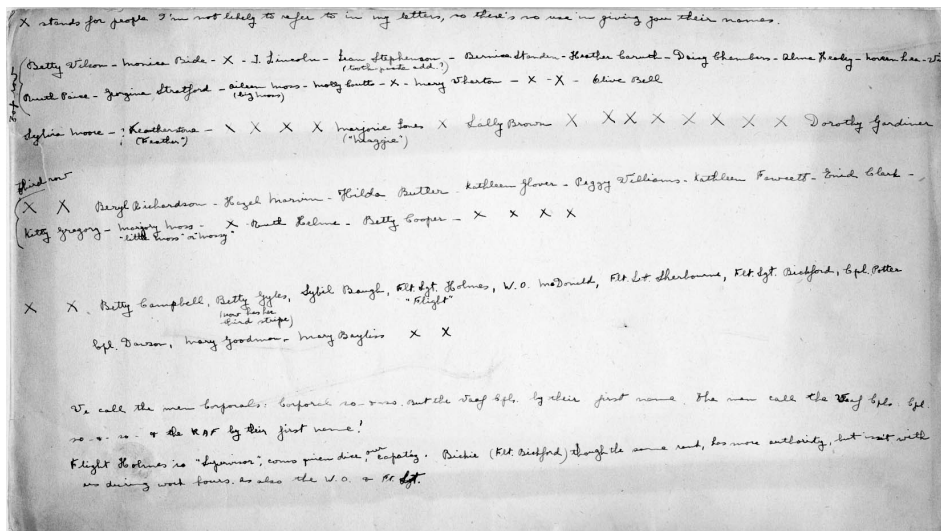 X stands for people I'm not likely to refer to in my letters, so there's no use in giving you their names.
Betty Wilson - Monica Bide - X - J. Lincoln - Jean Stephenson - Bernice Standen - Heather Carruth - Daisy Chambers - Alma Healey - Noreen Lee -
(tooth paste add.?)
Ruth Paice - Georgina Stratford - Aileen Moss - Molly Coutts - X - Mary Wharton - X - X - Olive Bell
(big moss)
Sylvia Moore - ? Featherstone - X X X X Marjorie Jones X Sally Brown X X X X X X X X Dorothy Gardiner
("Feather") ("Maggie")
third row
X X Beryl Richardson - Hazel Marvin - Hilda Butler - Kathleen Glover - Peggy Williams - Kathleen Fawcett - Enid Clark -
Kitty Gregory - Margery Moss - X Ruth Helme - Betty Cooper - X X X X
"little moss" or "mossy"
X X. Betty Campbell, Betty Gyles, Sybil Baugh, Flt. Sgt. Holmes, W.O. McDonald, Flt. Sgt. Sherbourne, Flt. Sgt. Bickford, Cpl. Potter
(now has her third stripe) "Flight"
Cpl. Dawson, Mary Goodman, Mary Bayliss X X
We call the men Corporals: Corporal so-&-so. But the Waaf Cpls. by their first name. The men call the Waaf Cpls. Cpl.
so-&-so- & the RAF by their first name!
Flight Holmes is "Supervisor", our capacity. Bickie (Flt. Bickford) though the same rank, has more authority, but isn't with
us during work hours. as also the W.O. & Flt. Sgt.